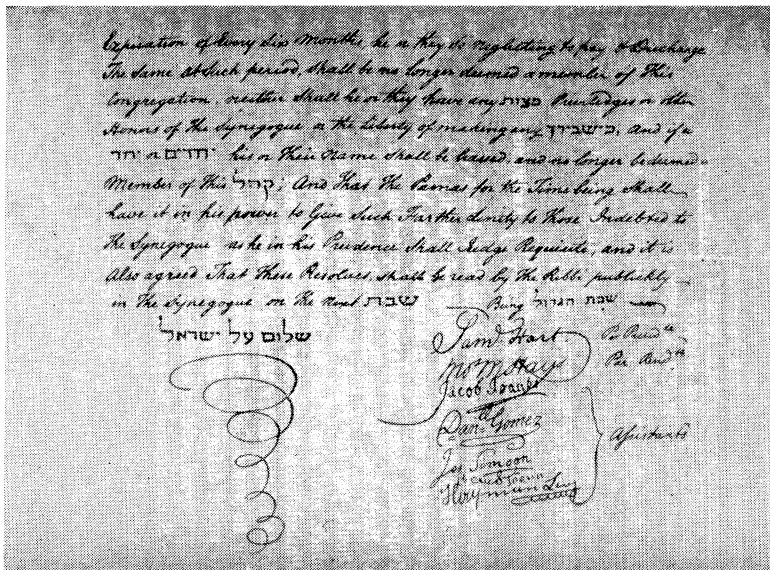 Expiration of Every Six Months, he or they so neglecting to pay & Discharge
The Same at Such period, shall be no longer deemed a member of This
Congregation, neither Shall he or they have any מצות Priviledges or other
Honors of The Synegogue or the liberty of making any מי שבירך, And if a
יחיד or יחדים his or Their Name Shall be Erased, and no longer be deemed a
Member of This קהל; And That the Parnas for the Time being Shall
have it in his power to Give Such Farther lenity to those Indebted to
The Synegogue as he in his Prudence Shall Judge Requisite, and it is
Also agreed That these Resolves, shall be read by the Ribbi publickly
in The Synegogue on The Next שבת Being שבת הגדול
שלום על ישראל
Saml. Hart.
Mos. M Hays
Jacob Franks
Danl. Gomez
Jos. Simson
Hayman Levy
Assistants